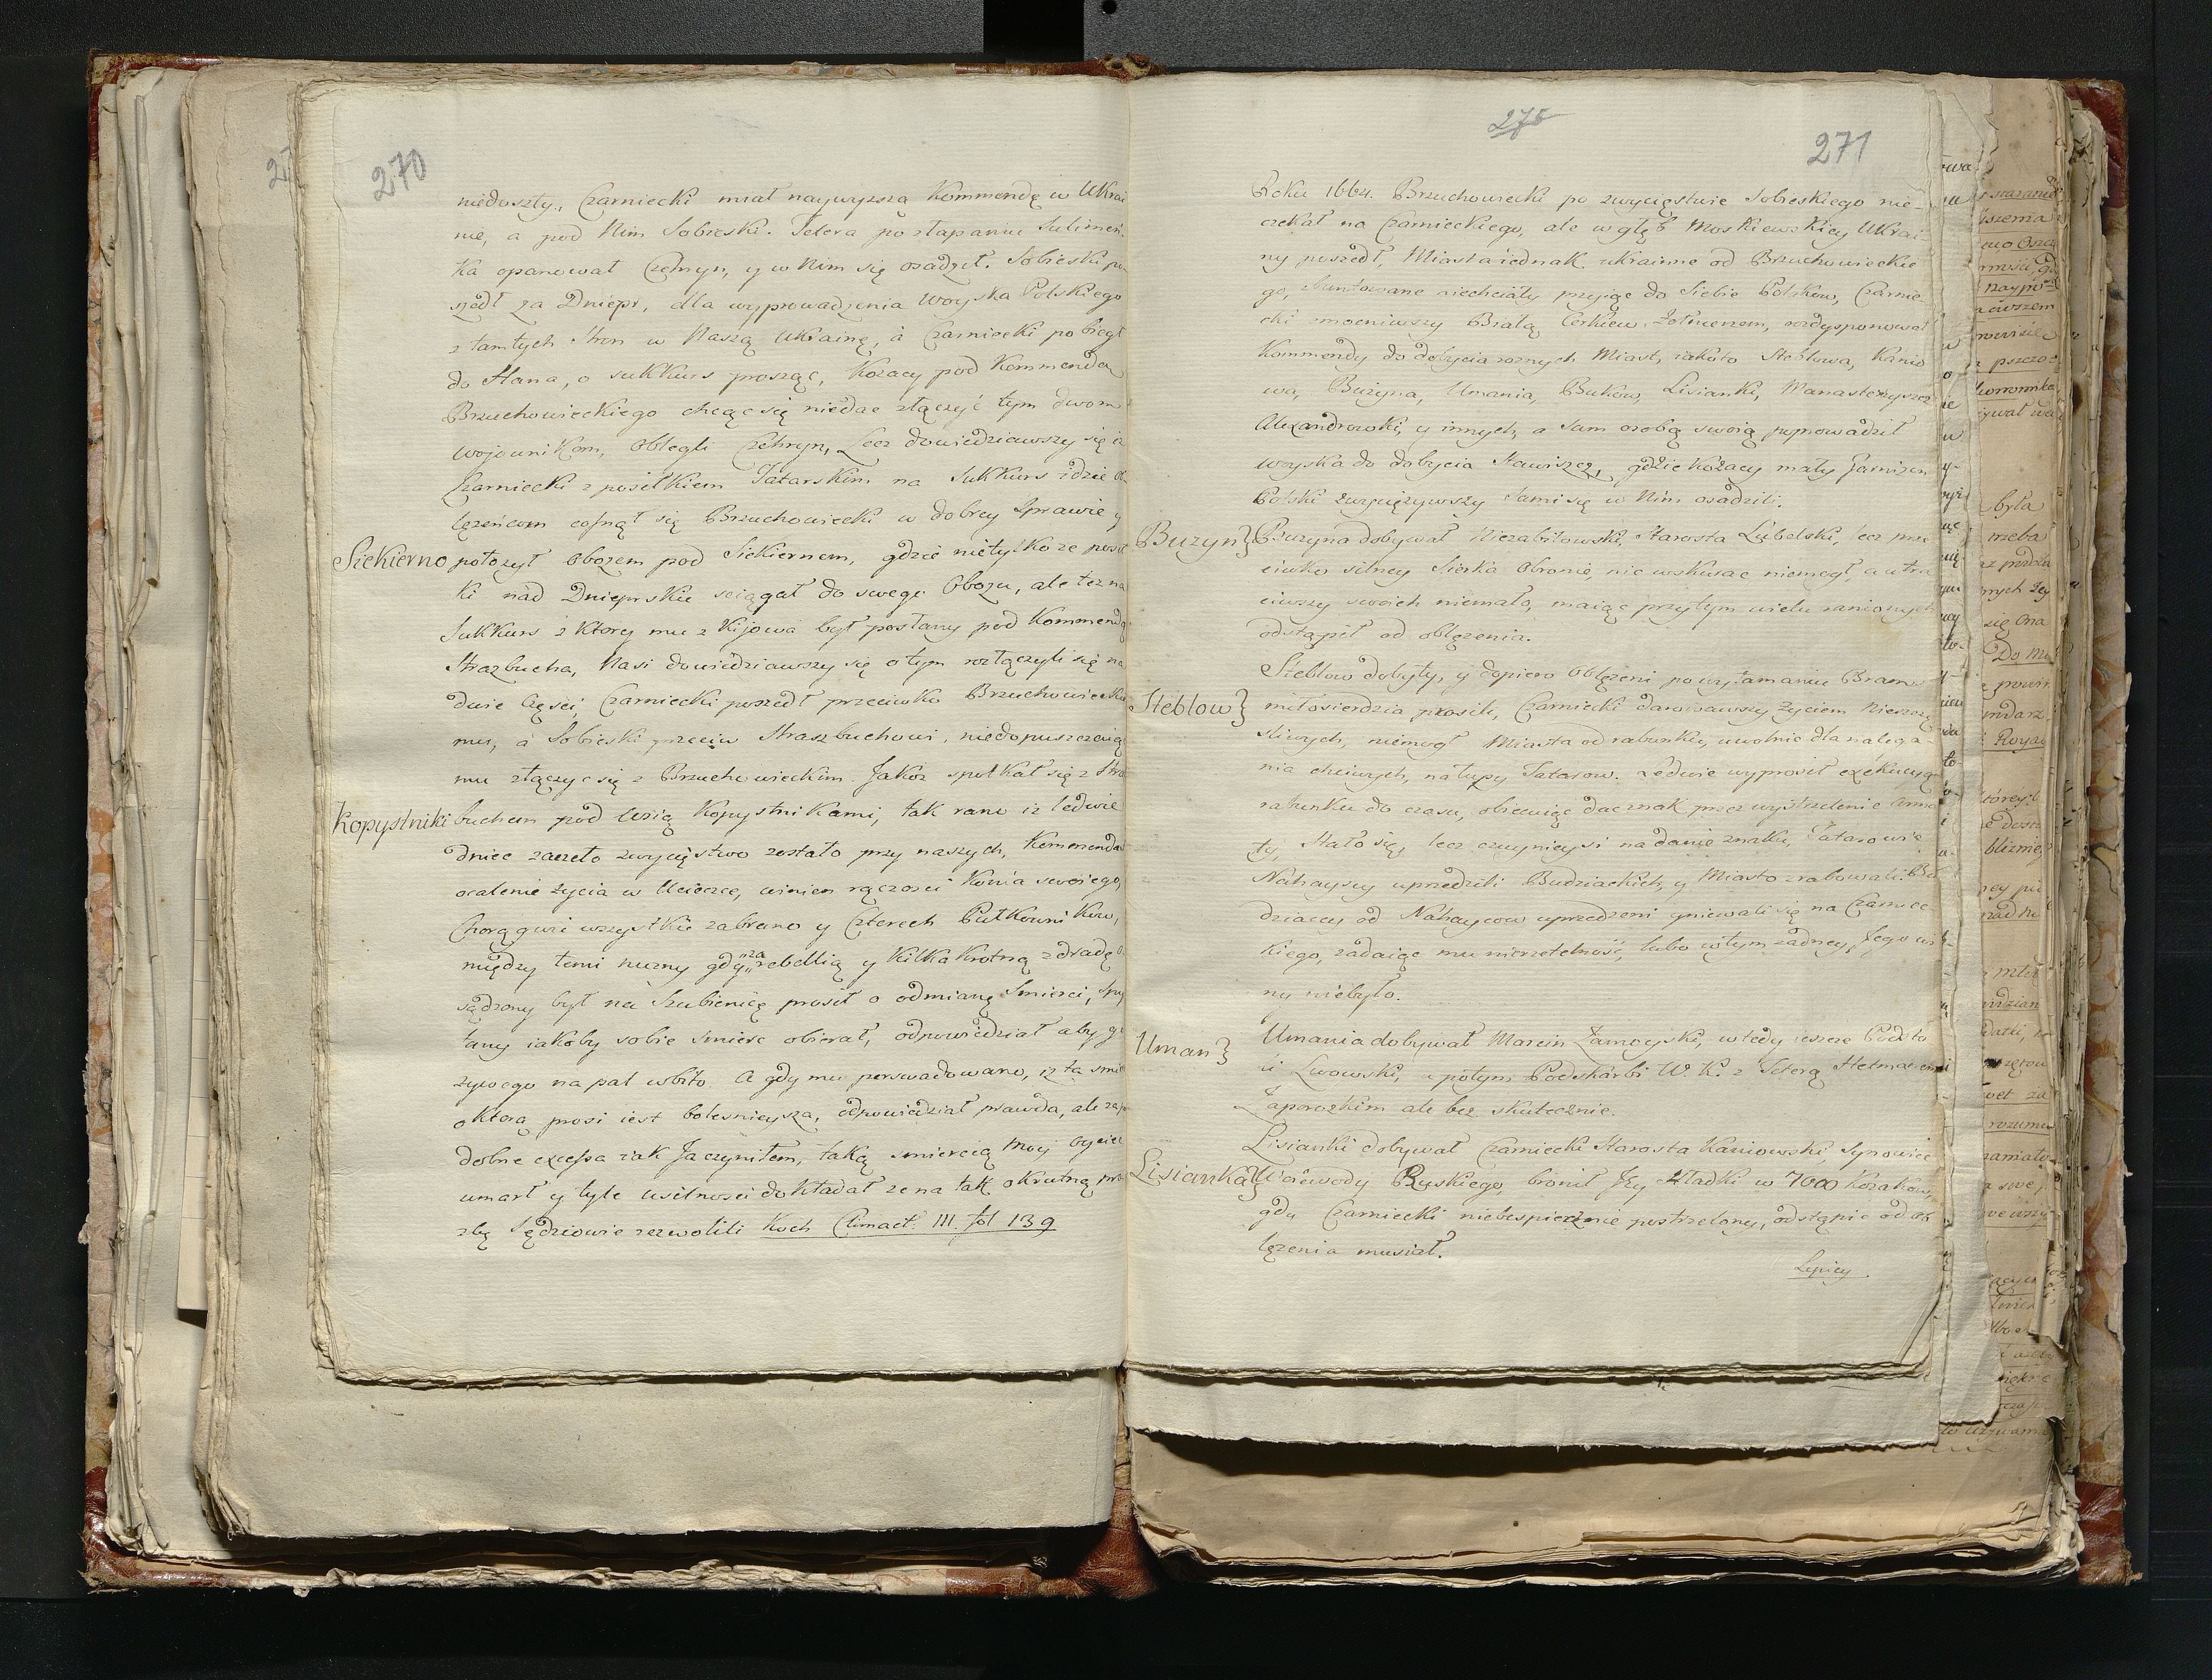 270
niedoszły, Czarniecki miał naywyzszą Kommendę w Ukrai
nie, a pod Nim Sobieski. Tetera po złapaniu Sulimeń
ka opanował Czehryn, y w Nim się osadził. Sobieski po
szedł za Dniepr, dla wyprowadzenia Woyska Polskiego
z tamtych stron w Naszą Ukrainę, á Czarniecki pobiegł
do Hana, o sukkurs prosząc, Kozacy pod Kommendą
Brzuchowieckiego chcąc się niedac złączyć tym dwom
wojownikom, oblegli Czehryn, Lecz dowiedziawszy się iz
Czarniecki z posiłkiem Tatarskim na Sukkurs idzie ob
lęzeńcom cofnął się Brzuchowiecki w dobrey Sprawie y
Siekierno połozył obozem pod Siekiernem, gdzie nietylko ze posił
ki nad Dnieprskie sciągał do swego Obozu, ale tez na
Sukkurs z ktory mu z Kijowa był posłany pod Kommendą
Strazbucha, Nasi dowiedziawszy się o tym rozłączyli się na
dwie części, Czarniecki poszedł przeciwko Brzuchowieckie
mu, á Sobieski przeciw Straszbuchowi, niedopuszczaiąc
mu złączyc się z Brzuchowieckim. Jakoz spotkał się z Stra
Kopystniki buchem pod wsią Kopystnikami, tak rano iz ledwie
dniec zaczeło zwycięstwo zostało przy naszych, Kommenda
ocalenie zycia w Ucieczce, winien rączosci Konia swoiego,
Chorągwie wszystkie zabrano y Czterech Pułkownikow,
między temi nuzny gdy za rebellią y kilka krotną zdradę o
sądzony był na Szubienicę prosił o odmianę Smierci, Spy
tany iakoby sobie smierc obierał, odpowiedział aby go
zywego na pal wbito. A gdy mu perswadowano, iz ta smie
o ktorą prosi iest bolesnieysza, odpowiedział prawda, ale za po
dobne excessa iak Ja czyniłem, taką smiercią Moy Oyciec
umarł y tyle usilnosci dokładał ze na tak okrutną pro
zbę Sędziowie zezwolili Koch Climact. III. fol 139
275
271
Roku 1664. Brzuchowiecki po zwycięstwie Sobieskiego nie-
czekał na Czarnieckiego, ale w głęb Moskiewskiey Ukrai-
ny poszedł, Miasta iednak ukrainne od Brzuchowieckie
go, buntowane niechciały przyiąc do Siebie Polakow, Czarnie-
cki mocniwszy Białą Cerkiew Zołnierzem, rozdysponował
Kommendy do dobycia roznych Miast, iakoto Steblowa, Kanio
wa, Buzyna, Umania, Bukow, Lisianki, Manasterzyszcz
Alexandrowki, y innych, a Sam osobą swoią poprowadził
woyska do dobycia Stawiszcz, gdzie Kozacy mały Garnizon
Polski zwyciężywszy sami się w Nim osadzili.
Buzyn} Buzyna dobywał Niezabitowski, Starosta Lubelski, lecz prze
ciwko silney Sierka Obronie, nic wskurac niemogł, a utra
ciwszy swoich niemało, maiąc przytym wielu ranionych
odstąpił od oblęzenia.
Steblow dobyty, y dopiero Oblęzeni po wyłamaniu Bramy
Steblow} miłosierdzia prosili, Czarniecki darowawszy Zyciem Nieszczę
śliwych, niemogł Miasta od rabunku uwolnic dla nalega
nia chciwych, na łupy Tatarow. Ledwie wyprosił exekucyą
rabunku do czasu, obiecuiąc dac znak przez wystrzelenie Arma
ty, Stało się, lecz czuynieysi na danie znaku, Tatarowie
Nahayscy uprzedzili Budziackich, y Miasto zrabowali. Bu
dziaccy od Nahaycow uprzedzeni gniewali się na Czarniec
kiego, zadaiąc mu nierzetelność, lubo w tym zadney Jego wi
ny niebyło.
Uman} Umania dobywał Marcin Zamoyski, wtedy ieszcze Podsto
li Lwowski, a potym Podskarbi W. K. z Teterą Hetmanem
Zaporozkim ale bez skutecznie.
Lisianki dobywał Czarniecki Starosta Kaniowski, Synowiec
Lisianka} Woiewody Ruskiego, bronił Jey Hładki w 7000 Kozakow,
gdy Czarniecki niebespiecznie postrzelony, odstąpic od ob
lęzenia musiał.
Lepiey